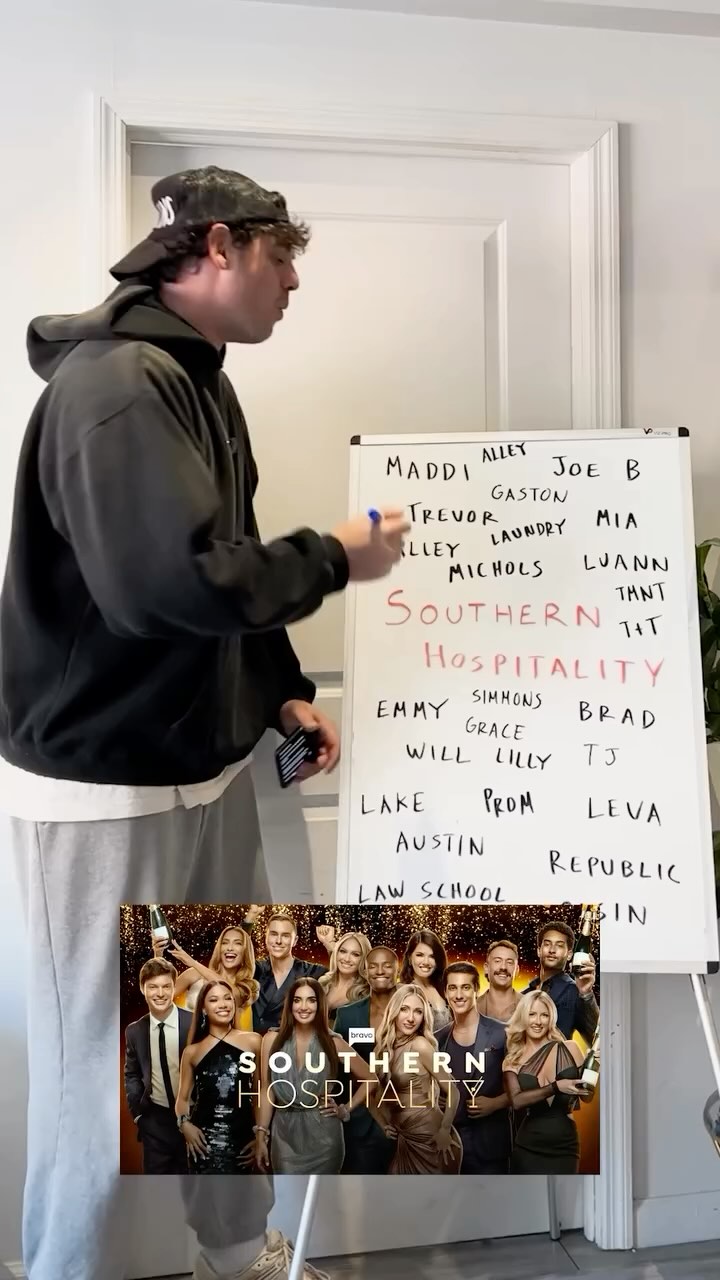 MADDI ALLEY JOE B
GASTON
TREVOR LAUNDRY MIA
LLEY
MICHOLS LUANN
TMNT
SOUTHERN T+T
HOSPITALITY
EMMY SIMMONS BRAD
GRACE
WILL LILLY TJ
LAKE PROM LEVA
AUSTIN
REPUBLIC
LAW SCHOOL
bravo
SOUTHERN
HOSPITALITY